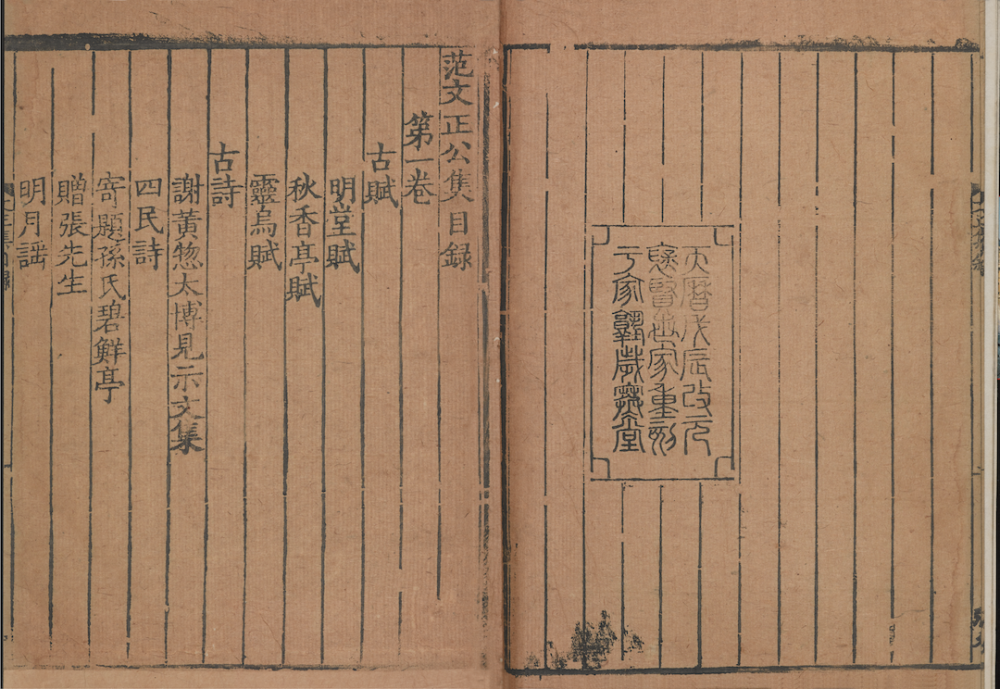 天曆戊辰改元
褒賢世家重刻
于家塾歲寒堂
范文正公集目錄
第一卷
古賦
明堂賦
秋香亭賦
靈烏賦
古詩
謝黃惣太博見示文集
四民詩
寄題孫氏碧鮮亭
贈張先生
明月謡